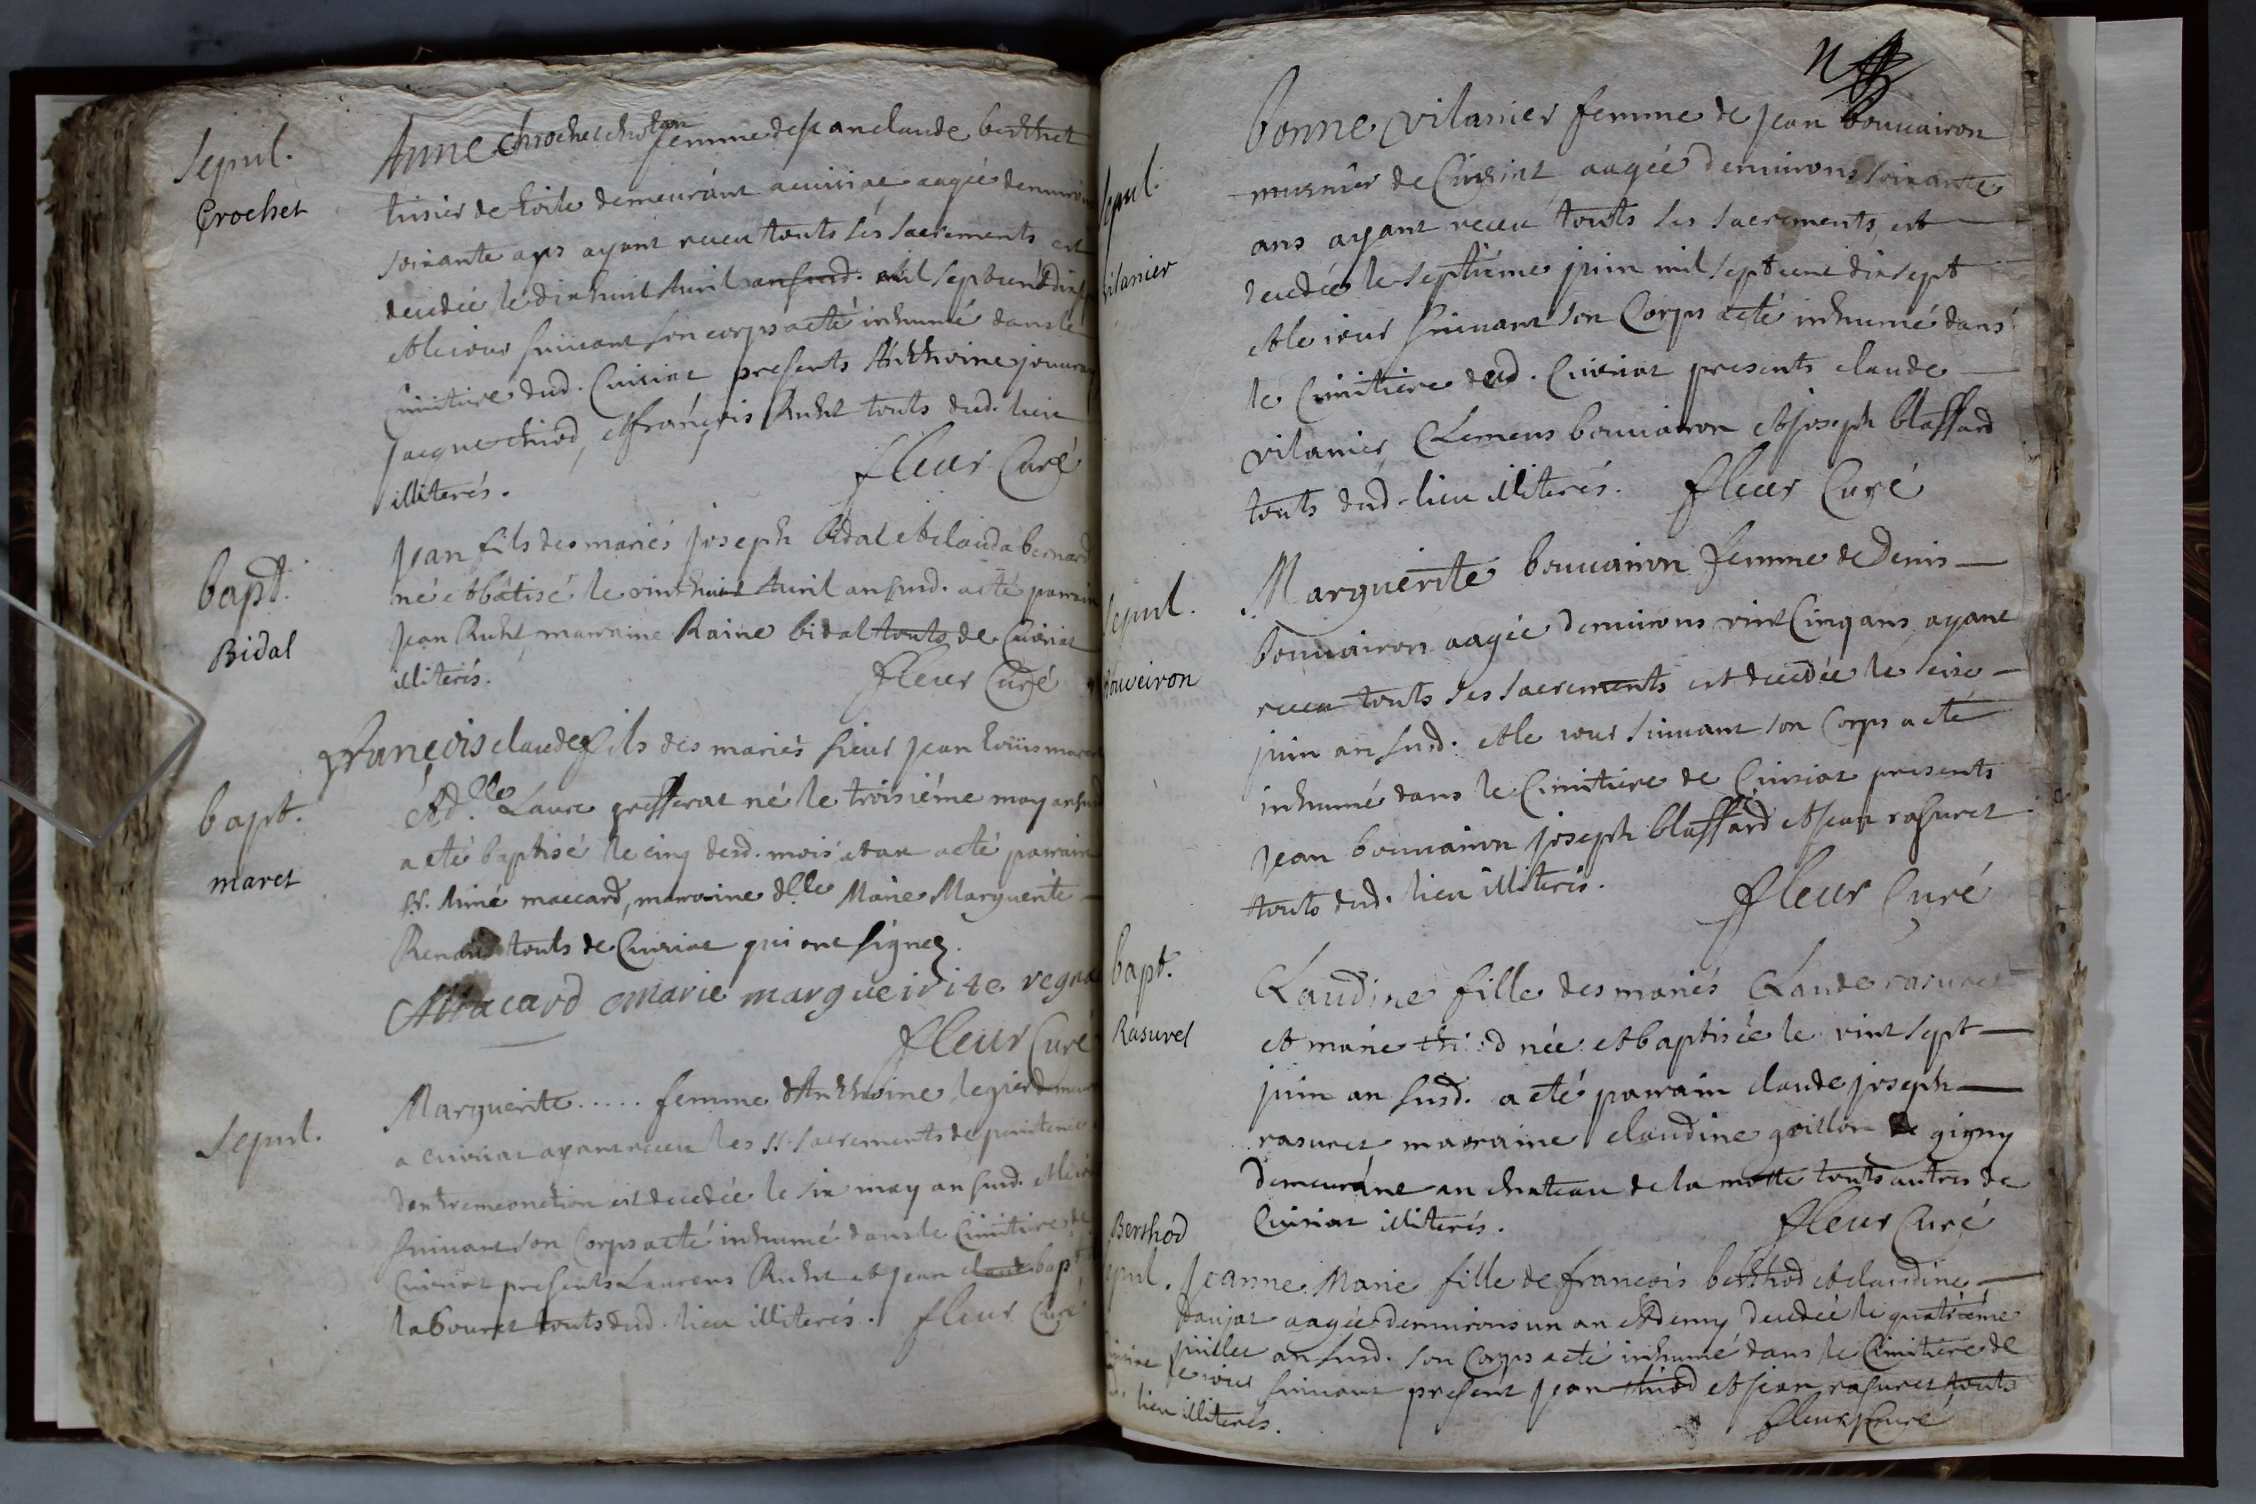 Sepul.
Crochet
Anne Chrochet femme de Jean claude berthet
tisier de toile demeurant a cuisiat aagée denuiro
soixante ans ayant receu touts ses sacrements est
decedée le dixhuit Auril an susd. mil septcent dix
et le iour suiuant son corps a eté inhumé dans le
Cimitiere dud. Cuisiat presents Anthoine
Jacque chiod, et françois Ruhet touts dud. lieu
illiterés.
fleur Curé
bapt.
Bidal
Jean fils des mariés joseph bidal et clauda bernard
né et bâtisé le vinthuit Auril an susd. a eté parrain
Jean Ruhet marraine Raine bidal touts de Cuisiat
illiterés.
fleur Curé
bapt.
maret
françois claude fils des mariés sieur jean louis maret
et d.lle Laure grefferat né le troisiéme may an susd
a eté baptisé le cinq desd. mois et an a eté parrain
sr. Aimé maccard, marraine d.lle Marie Marguerite
Renaud touts de Cuisiat qui ont signez.
AMacard Marie margueirite regna
fleur Curé
Sepul.
Marguerite ..... femme d'Anthoine legier demeur
a cuisiat ayant receu les Sts. sacrements de penitence
d'extremeonction est decedée le six may an susd. et le iour
suiuant son Corps a eté inhumé dans le Cimitiere de
Cuisiat presents Laurens Ruhet et Jean claude bapt
labouret touts dud. lieu illiterés. fleur Curé
sepul.
vilanier
bonne vilanier femme de jean bouuairon
musnier de Cuisiat aagée denuirons soixante
ans ayant receu touts ses sacrements, est
decedée le septiéme juin mil septcent dixsept
et le iour suiuant son Corps a eté inhumé dans
le Cimitiere dud. Cuisiat presents claude
vilanier, Clemens bouuairon et joseph blaffard
touts dud. lieu illiterés. fleur Curé
sepul.
bouveiron
Marguerite bouuairon femme de Denis
bouuairon aagée denuirons vint Cinq ans ayant
receu touts ses sacrements est decedée le seise
juin an susd. et le iour suiuant son Corps a eté
inhumé dans le Cimitiere de Cuisiat presents
jean bouuairon joseph blaffard et jean rasuret
touts dud. lieu illiterés.
fleur Curé
bapt.
Rasurel
Claudine fille des mariés Claude rasuret
et marie chiod née et baptisée le vint sept
juin an susd. a eté parrain claude joseph
rasuret marraine claudine goillon de gigny
demeurant au chateau de la motte touts autres de
Cuisiat illiterés.
fleur Curé
Berthod
sepul.
Jeanne Marie fille de francois berthod et claudine
danjat aagée denuirons un an et demy decedée le quatriéme
juillet an susd. son Corps a eté inhumé dans le Cimitiere de
Cuisiat le iour suiuant present jean chiod et jean rasuret touts
lieu illiterés.
fleur Curé